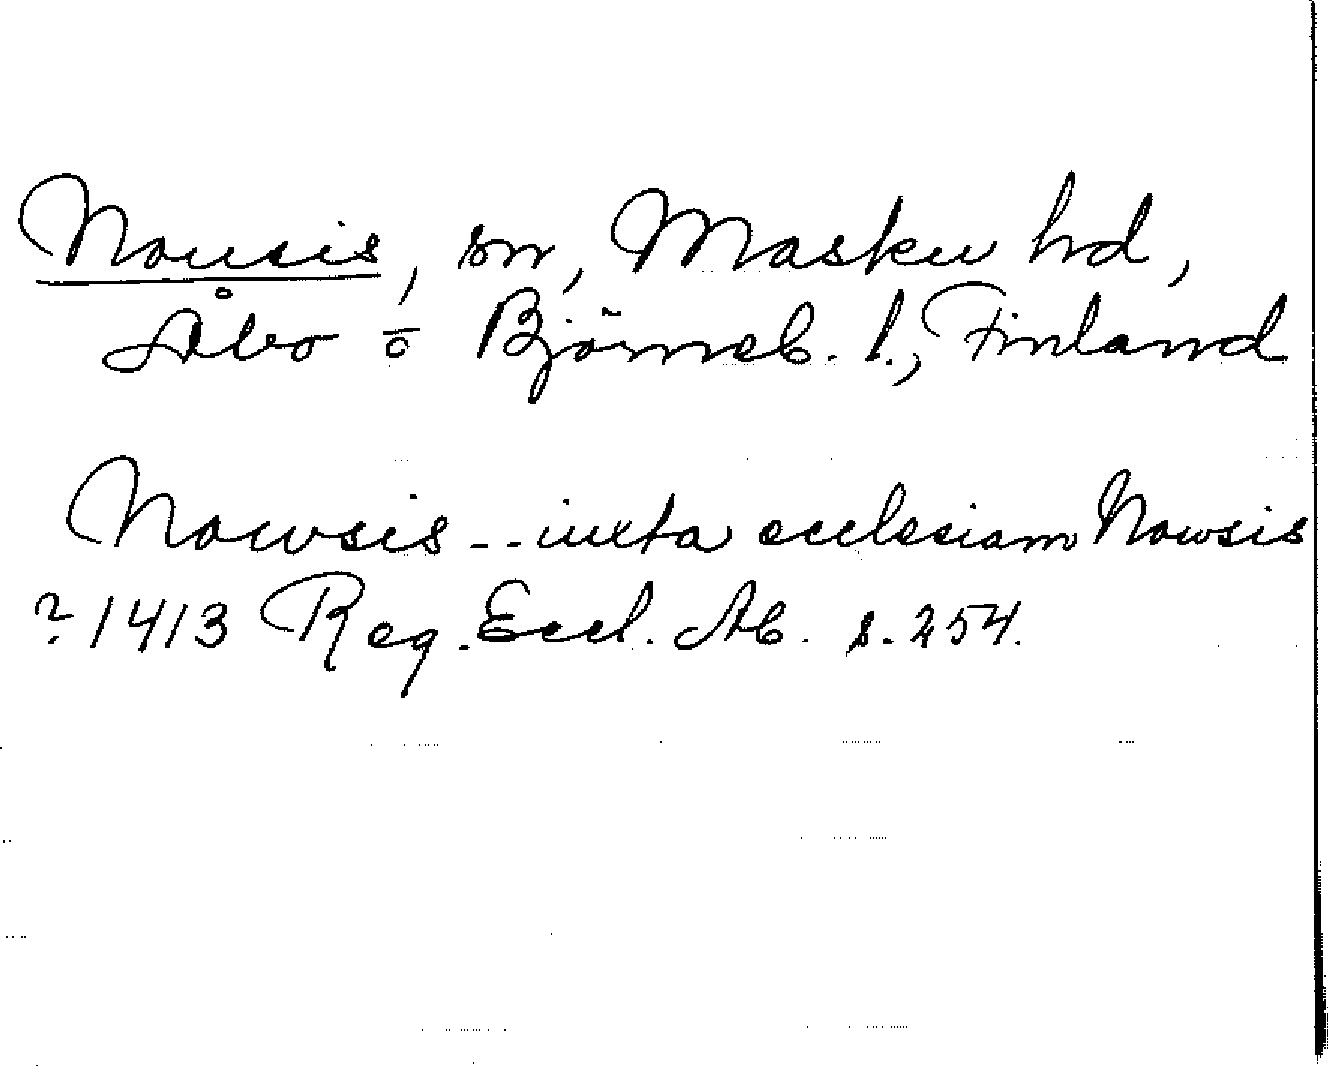 Nousis, sn, Masku hd,
Åbo o Björneb. l., Finland
Nowsis -- iuxta ecclesiam Nowsis
? 1413 Reg. Eccl. Ab. s. 254.